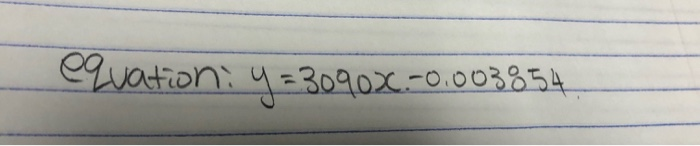 equation: y=3090x-0.003854